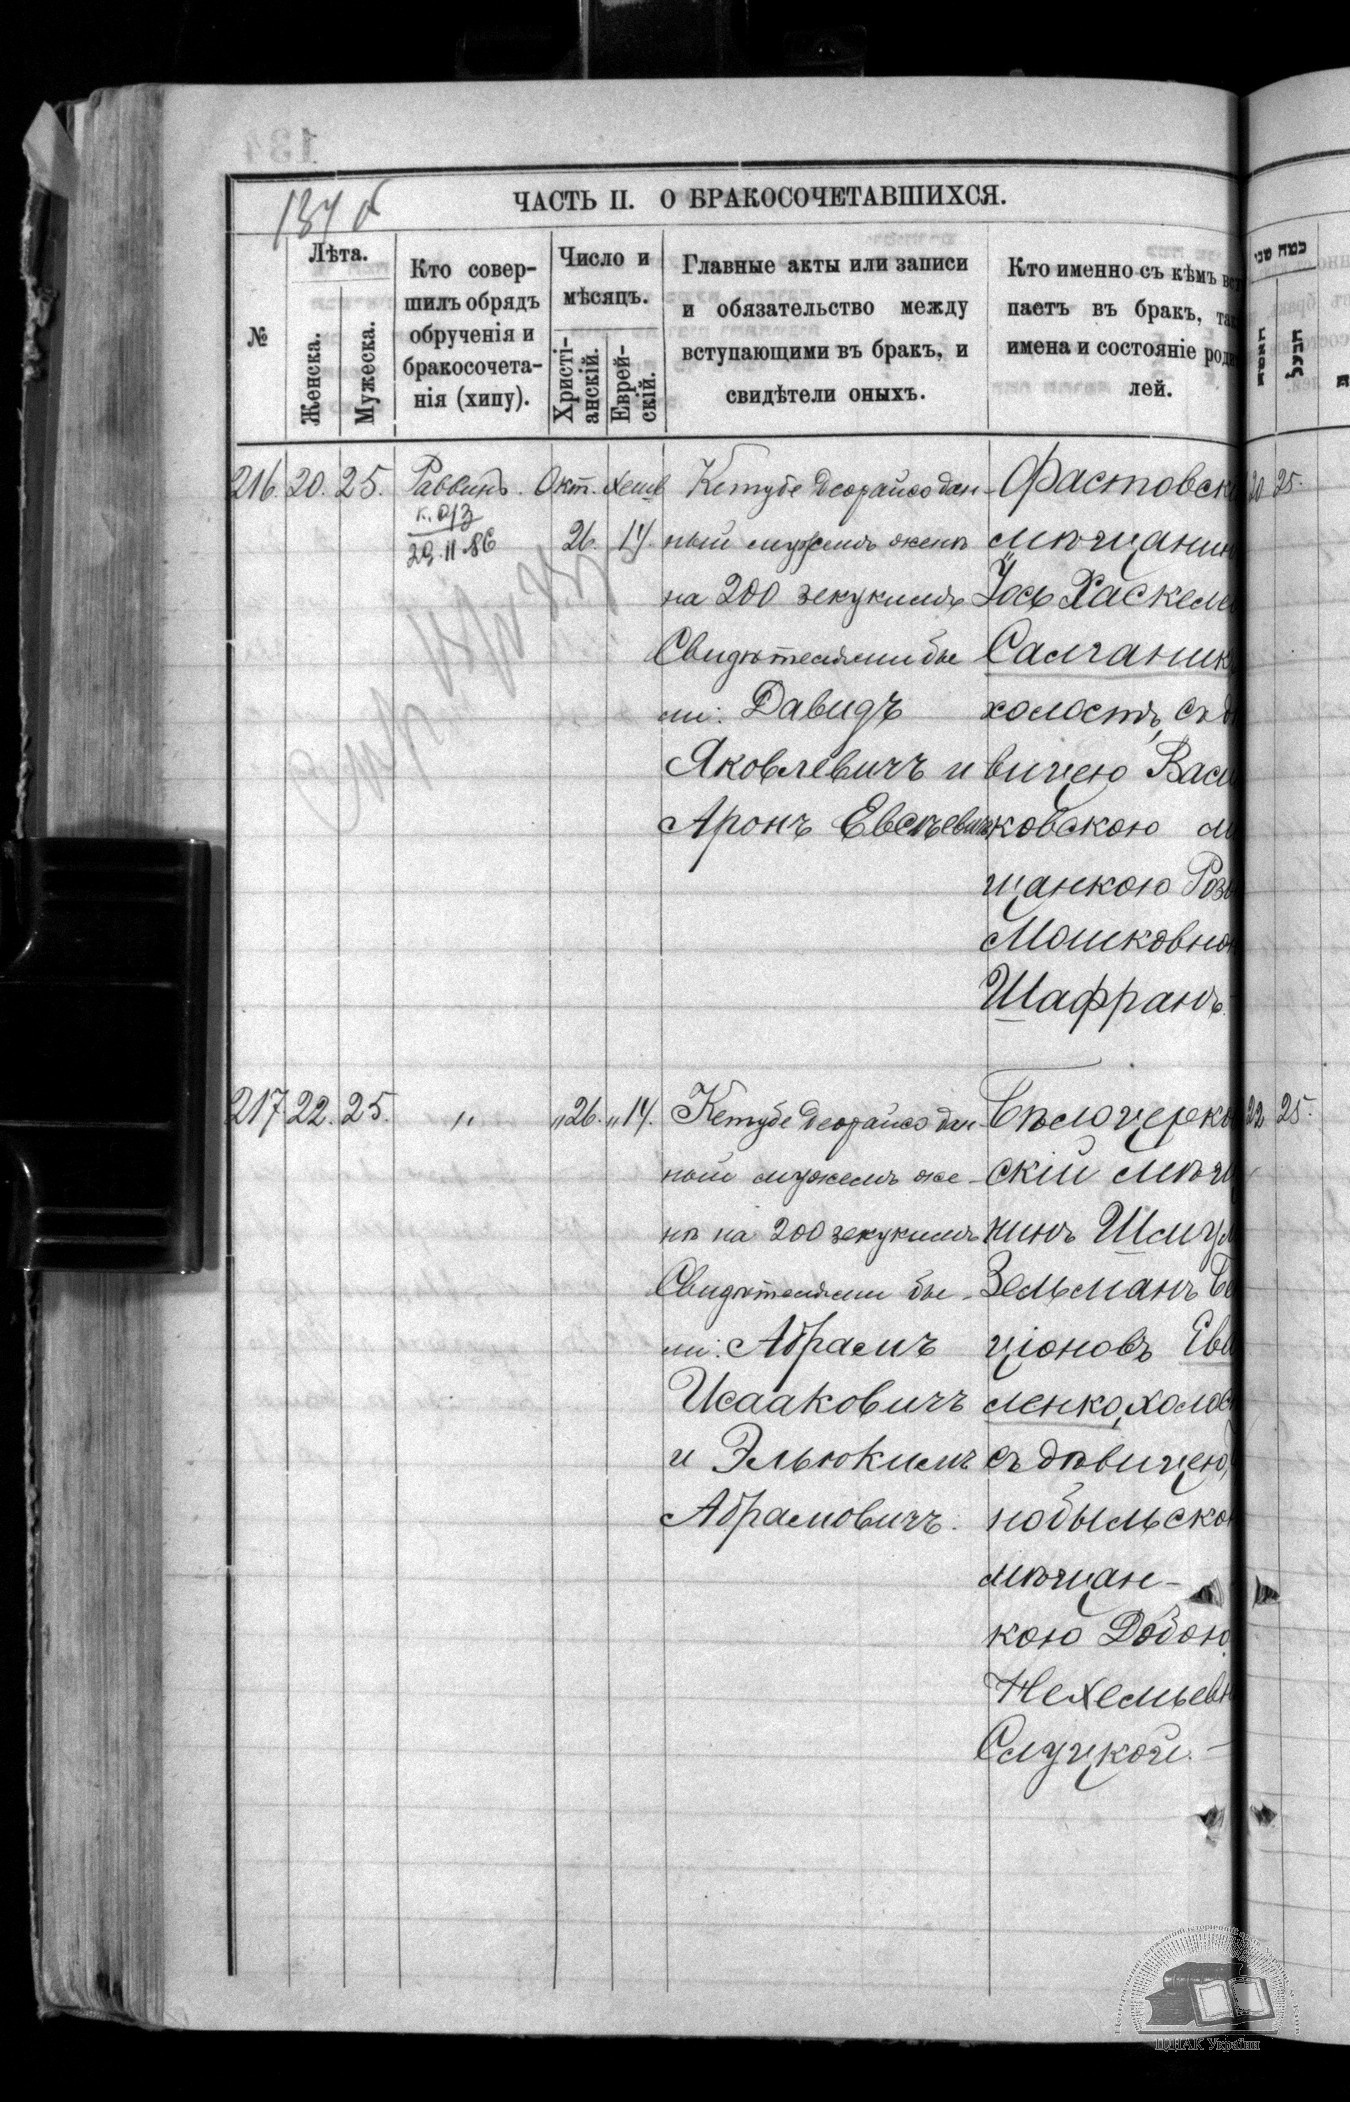 134 б
ЧАСТЬ II. О БРАКОСОЧЕТАВШИХСЯ.
№
Лѣта.
Женска.
Мужеска.
Кто совер-
шилъ обрядъ
обрученія и
бракосочета-
нія (хипу).
Число и
мѣсяцъ.
Христі-
анскій.
Еврей-
скій.
Главные акты или записи
и обязательство между
вступающими въ бракъ, и
свидѣтели оныхъ.
Кто именно съ кѣмъ вст
паетъ въ бракъ, так
имена и состояніе роди
лей.
כמה שני
האשה
הבעל
216. 20. 25. Раввинъ. Окт. Хешв 26. 14.
29.11.86
Кетубе деорайсо дан-
ный мужемъ женѣ
на 200 зекукимъ
Свидѣтелями бы
ли: Давидъ
Яковлевичъ и
Аронъ Евсѣевичъ
Фастовскі
мѣщанин
Іось Хаскеле
Салганик
холостъ, съ дѣ
вицею Васи
ковскою м
щанкою Розо
Мошковно
Шафранъ.
20 25.
217 22. 25. „ „26. „14.
Кетубе деорайсо дан-
ный мужемъ же-
нѣ на 200 зекукимъ
Свидѣтелями бы-
ли: Абрамъ
Исааковичъ
и Эльюкимъ
Абрамовичъ.
Бѣлоцерков
скій мѣща
нинъ Шмул
Зельманъ Бе
ціоновъ Ева
ленко, холост
съ дѣвицею,
нобыльско
мѣщан-
кою Добою
Нехемьевн
Слуцкой.-
22 25.
ЦДІАК України